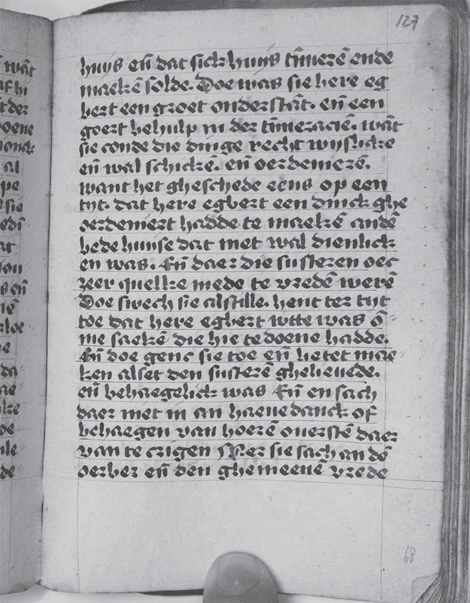 127
huys en̄ dat sick huys tīmerē ende
maekē solde. Doe was sie here eg
bert een groet onderstāt. en̄ een
goert behulp in der tīmeraciēn. wāt
sie conde die dinge recht wyslicke
en̄ wal schickē. en̄ oerdenierē.
want het gheschede eens op een
tyt. dat here egbert een dinck ghe
oerdeniert hadde te maekē anden̄
bede huyse dat niet wal dienlick
en was. En̄ daer die susteren oec
zeer quellke mede te vredē werē
Doe swech sie al stille. hent ter tyt
toe dat here egbert wtte was ō
me saekē die hie te doene hadde.
En̄ doe genc sie toe en̄ lietet mae
ken als et den susterē ghelieuede.
en̄ behaegelick was En̄ en sach
daer niet in an haeue danck of
behaegen van hoerē ouerstē daer
van te crigen Mer sie sach an dē
oerber en̄ den ghemeenē vrede
68